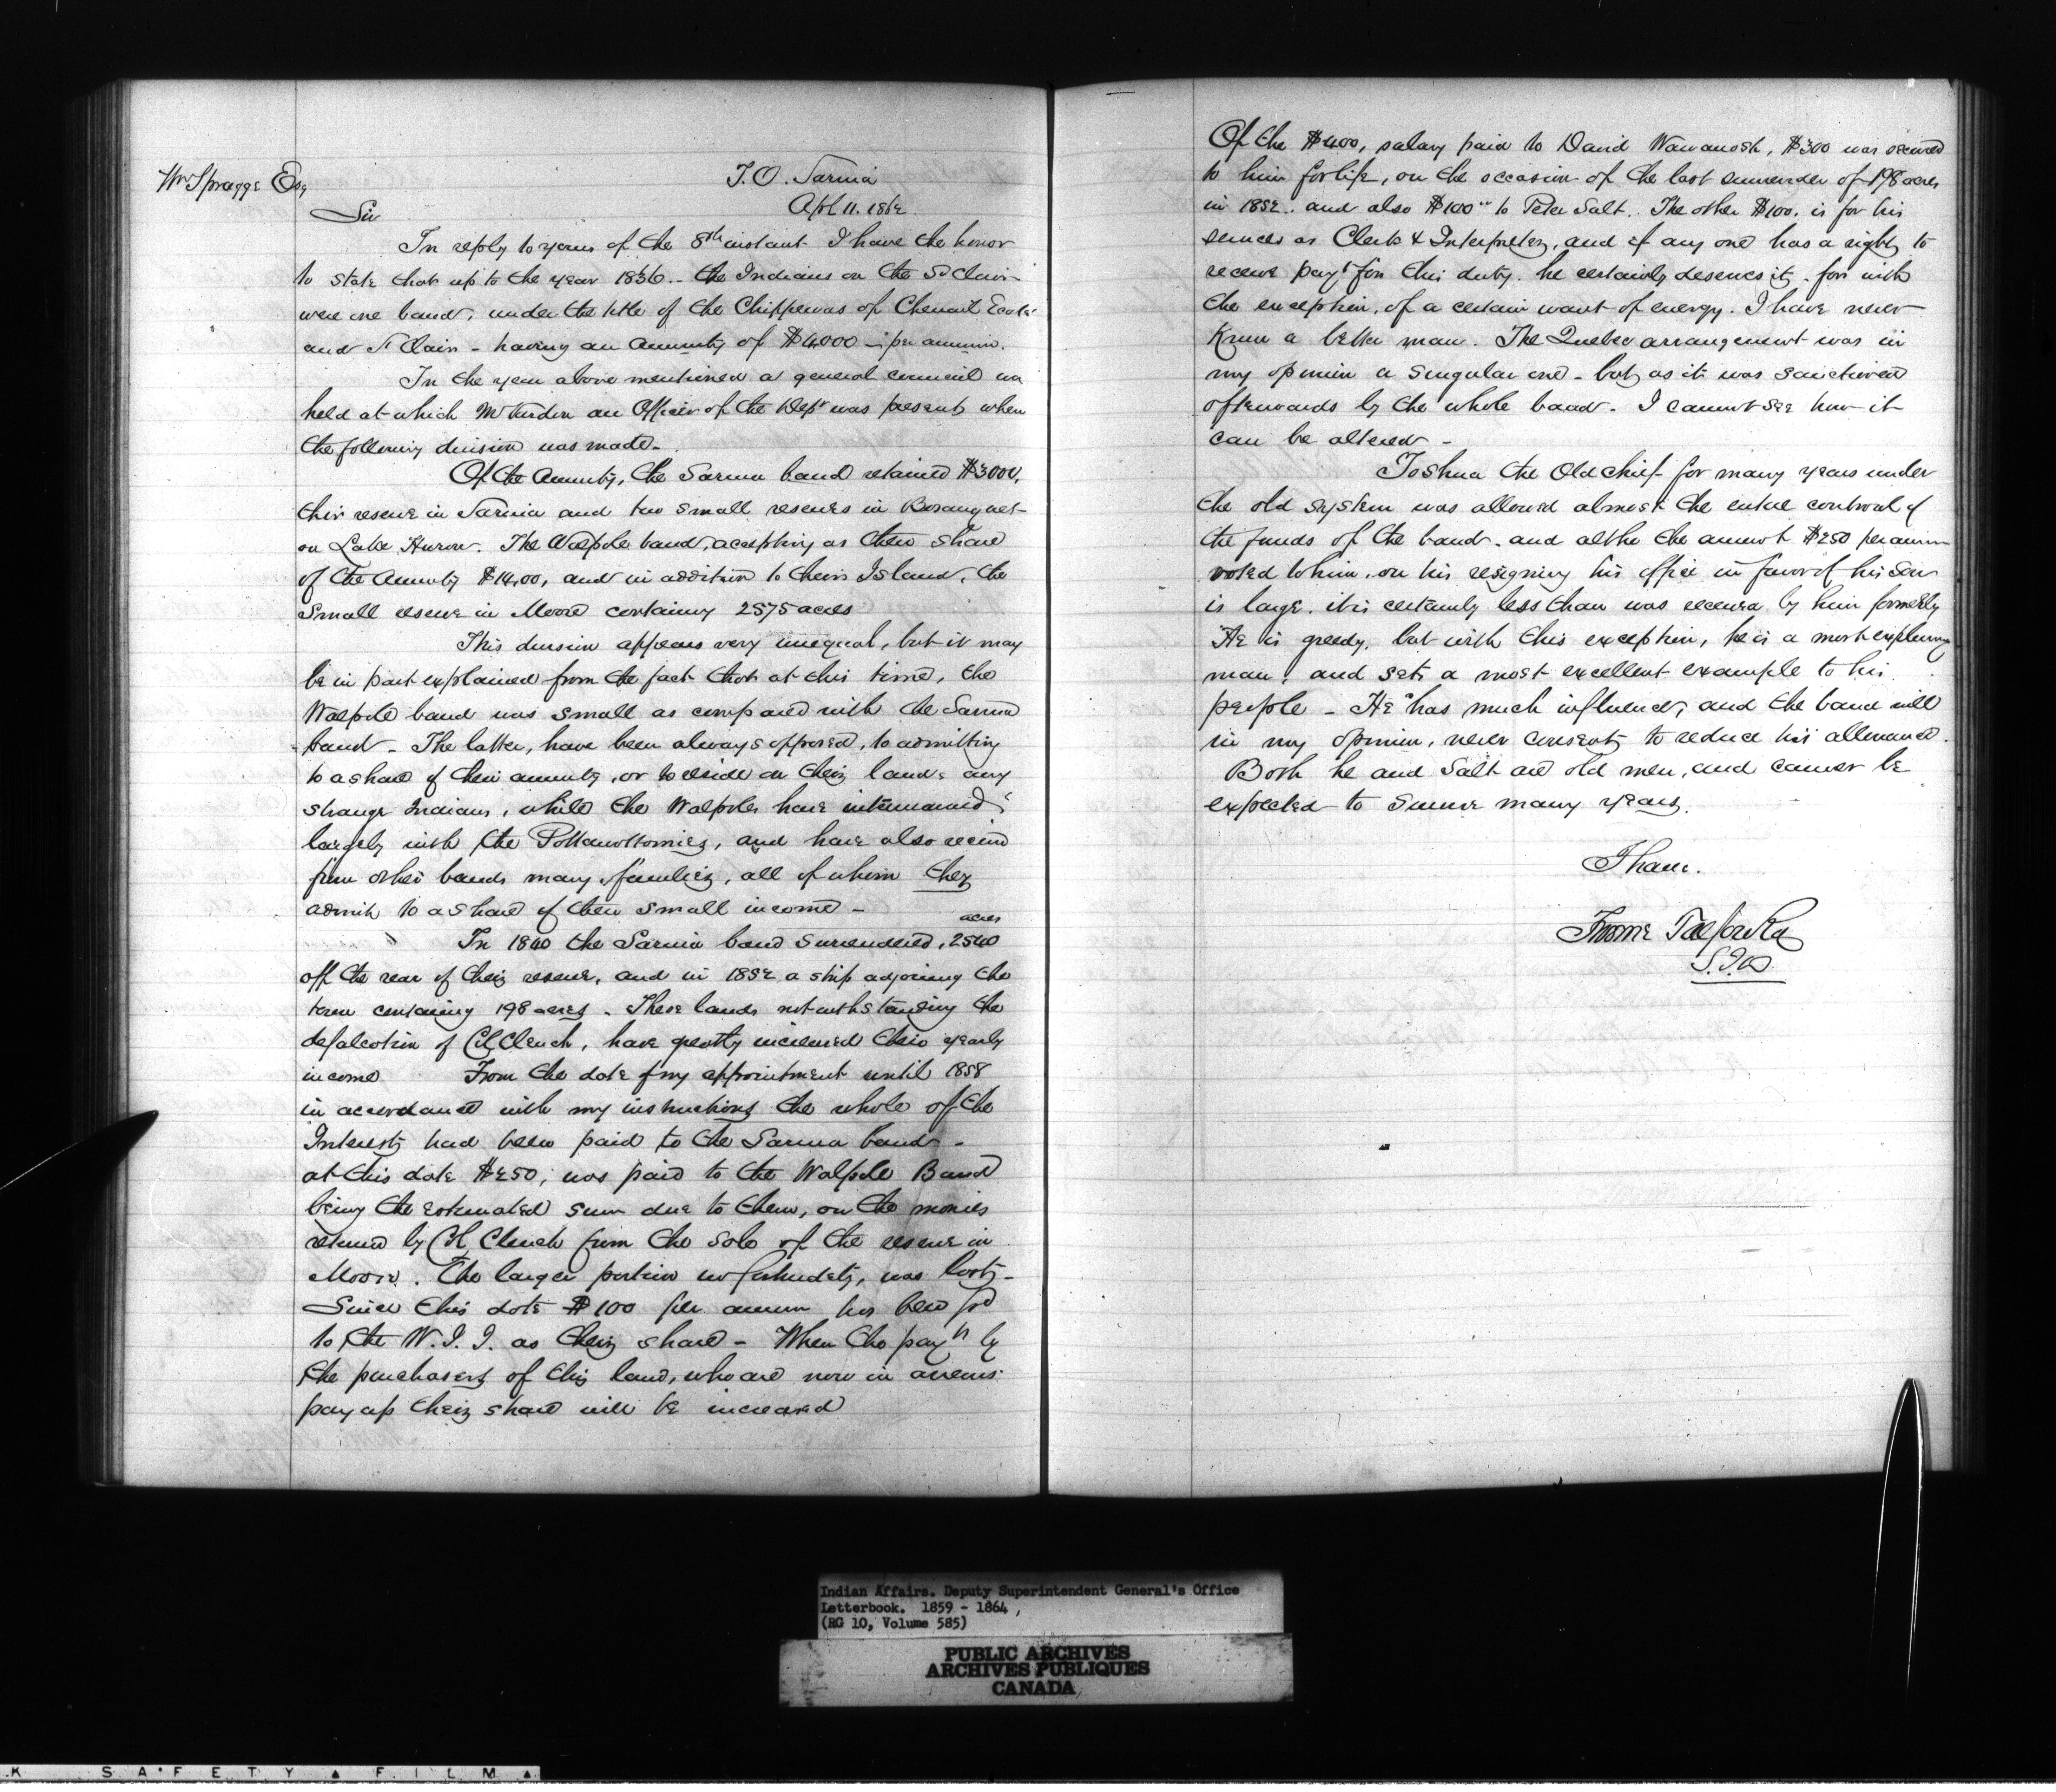 Wm Spragge Esq
I.O. Sarnia
Apl 11. 1862
Sir
In reply to yours of the 8th instant I have the honor
to state that up to the year 1856 - the Indians on the St Clair
were one band, under the title of the Chippewas of Chenail Ecarté
and St Clair - having an annuity of $4,000 - per annum.
In the year above mentioned a general council was
held at which Mr an Officer of the Dept was present, when
the following division was made -
Of the Annuity, the Sarnia band retained $3000,
their reserve in Sarnia and two small reserves in Bosanquet
on Lake Huron. The Walpole band, accepting as their share
of the Annuity $14,00, and in addition to their Island, the
small reserve in Moore containing 2575 acres
This division appears very unequal, but it may
be in part explained from the fact that at this time, the
Walpole band was small as compared with the Sarnia
band - The latter, have been always opposed, to admitting
to a share of their annuity, or to reside on their lands any
strange Indians, while the Walpoles have intermarried
largely with the Pottawottomies, and have also received
from other bands many families, all of whom they
admit to a share of their small income -
In 1840 the Sarnia band surrendered, 2540 acres
off the rear of their reserve, and in 1852 a strip adjoining the
town containing 198 acres - These lands notwithstanding the
defalcation of Col Clench, have greatly increased their yearly
income From the date of my appointment until 1858
in accordance with my instructions the whole of the
Interest, had been paid to the Sarnia band -
at this date $250, was paid to the Walpole Band
being the estimated sum due to them, on the monies
returned by Col Clench from the sale of the reserve in
Moore. The larger portion unfortunately, was lost -
Since this date $100 per annum has been pd
to the W.I.I. as their share - When the payts by
the purchasers of this land, who are now in arrears
pay up their share will be increased
Of the $400, salary paid to David Wawanosh, $300 was secured
to him for life, on the occasion of the last surrender of 198 acres
in 1852. and also $100 to Peter Salt. The other $100. is for his
services as Clerk & Interpreter, and if any one has a right to
receive payt for this duty. he certainly deserves it. for with
the exception, of a certain want of energy. I have never
known a better man. The Quebec arrangement was in
my opinion a singular one - but, as it was sanctioned
afterwards by the whole band. I cannot see how it
can be altered -
Joshua the Old chief for many years under
the old system was allowed almost the entire controul of
the funds of the band. and altho the amount $250 per annum
voted to him, on his resigning his office in favor of his son
is large. it is certainly less than was received by him formerly
He is greedy, but with this exception, he is a most exemplary
man, and sets a most excellent example to his
people - He has much influence, and the band will
in my opinion, never consent, to reduce his allowance.
Both he and Salt are old men, and cannot be
expected to survive many years.
I have.
S.I.A
Indian Affairs. Deputy Superintendent General's Office
Letterbook. 1859 - 1864,
(RG 10, Volume 585)
PUBLIC ARCHIVES
ARCHIVES PUBLIQUES
CANADA
K SAFETY ▲ FILM ▲